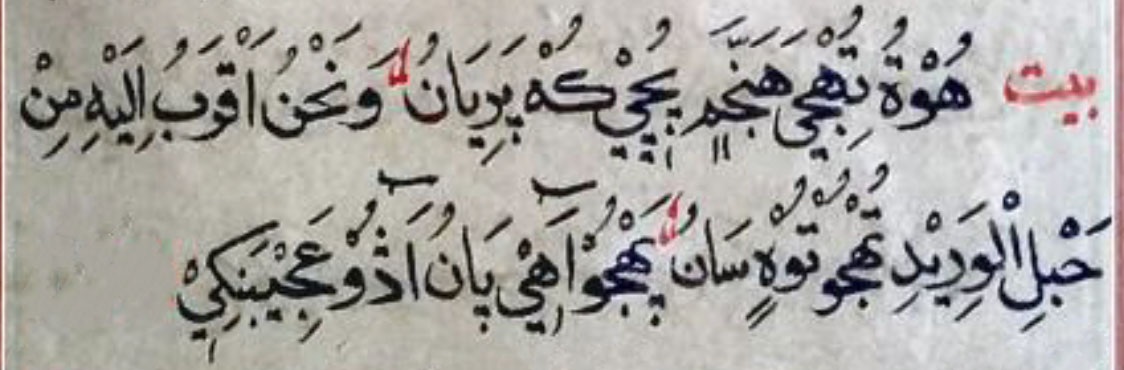 بيت هُوْةُ تُهِجْي هَنْجَمِ پُڇْي كُهْ پَرِيَانُ وَنَحْنُ اَقْرَبُ اِلَيْهِ مِنْ
حَبْلِ الْوَرِيْدِ تُهْجُوْ تُوْهٍ سَانُ پَهْجُوْ آهْيِ پَانُ آڏُوْ عَجِيْبَنِكِيْ